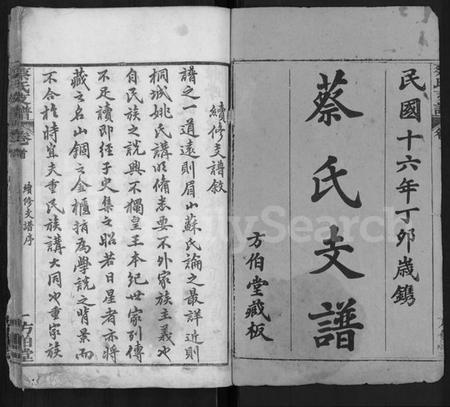 民國十六年丁卯歲鐫
蔡氏支譜
方伯堂藏板
續修支譜敘
譜之一道遠則眉山蘇氏論之最詳近則
桐城姚氏講明備志要不外家族主義也
自民族之說興不獨皇王本紀世家列傳
不足讀即經子史集之昭若日星者亦將
藏之名山錮之金櫃指為學說之背景而
不合於時宜矣夫重民族講大同也重家族
蔡氏支譜 卷首
續修支譜序
一 方伯堂
FamilySearch